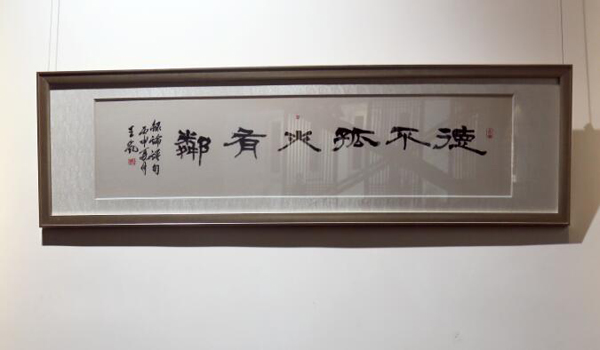 德不孤必有鄰
録論語句
丙申夏月